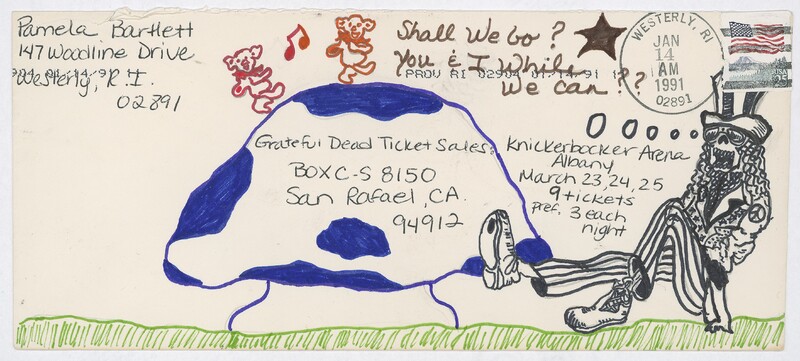 Pamela Bartlett
147 Woodline Drive
Westerly, R.I.
02891
Shall We Go?
You & I While
We Can??
PROV RI 02904 01-14-91
WESTERLY, RI
JAN
14
AM
1991
02891
USA
25
Grateful Dead Ticket Sales:
BOX C-S 8150
San Rafael, CA.
94912
Knickerbocker Arena
Albany
March 23, 24, 25
9 tickets
pref. 3 each
night